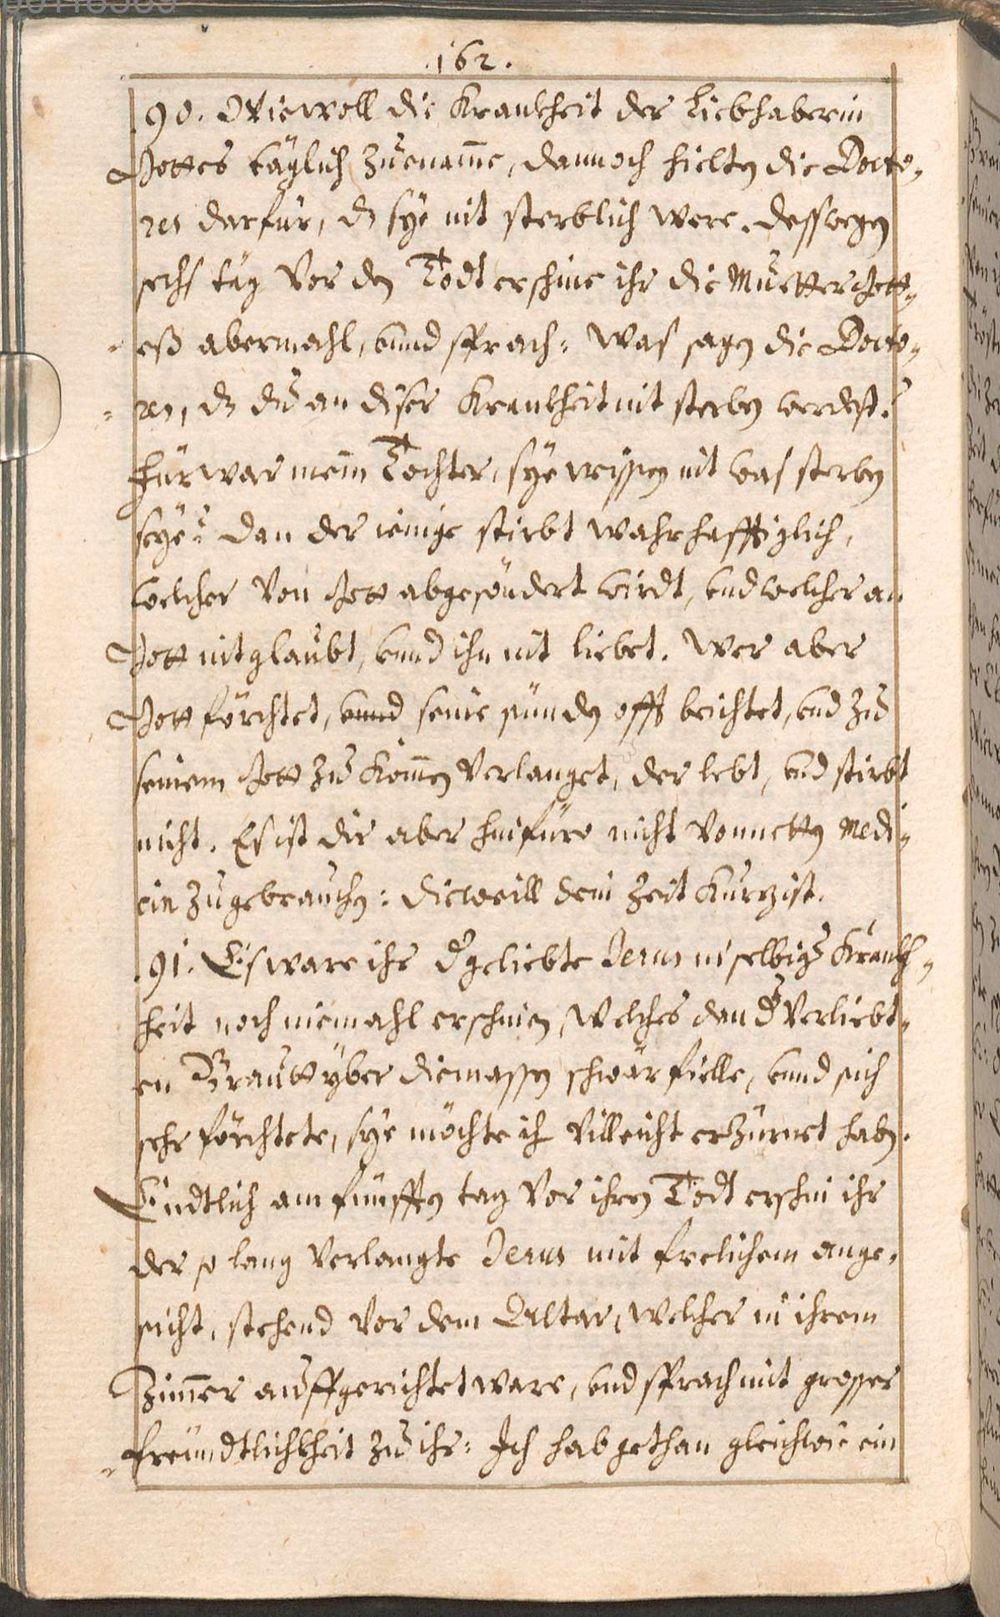 162.
90. Wiewoll die Krankheit der Liebhaberin
Gottes täglich zuename, dannoch hielten die Docto-
res darfür, dz sye nit sterblich were. desswegen
sechs tag vor den Todt erschine ihr die Muetter Gott-
eß abermahl, unnd sprach: was sagen die Docto-
res, dz du an diser Krankheit nit sterben werdest?
fürwar mein Tochter, sye wissen nit was sterben
seye? dan der ienige stirbt wahrhafftiglich,
welcher von Gott abgesöndert wirdt, und welcher an
Gott nit glaubt, unnd ihn nit liebet. wer aber
Gott förchtet, unnd seine sünden offt beichtet, und zu
seinem Gott zu kommen verlanget, der lebt, und stirbt
nicht. Es ist dir aber hinfüro nicht vonnetten Medi-
cin zugebrauchen: dieweill dein Zeit kurz ist.
91. Es ware ihr d'geliebte Jesus in selbiger Krank-
heit noch niemahl erschinen, welches dan der verliebt-
en Braut yber diemassen schwär fielle, unnd sich
sehr förchtete, sye möchte ih villeicht erzürnet haben.
Endtlich am fünfften tag vor ihren Todt erschin ihr
der so lang verlangte Jesus mit frelichem ange-
sicht, stehend vor dem Altar, welcher in ihrem
Zimmer auffgerichtet ware, und sprach mit grosser
freündtlichkheit zu ihr: Ich hab gethan gleichwie ein